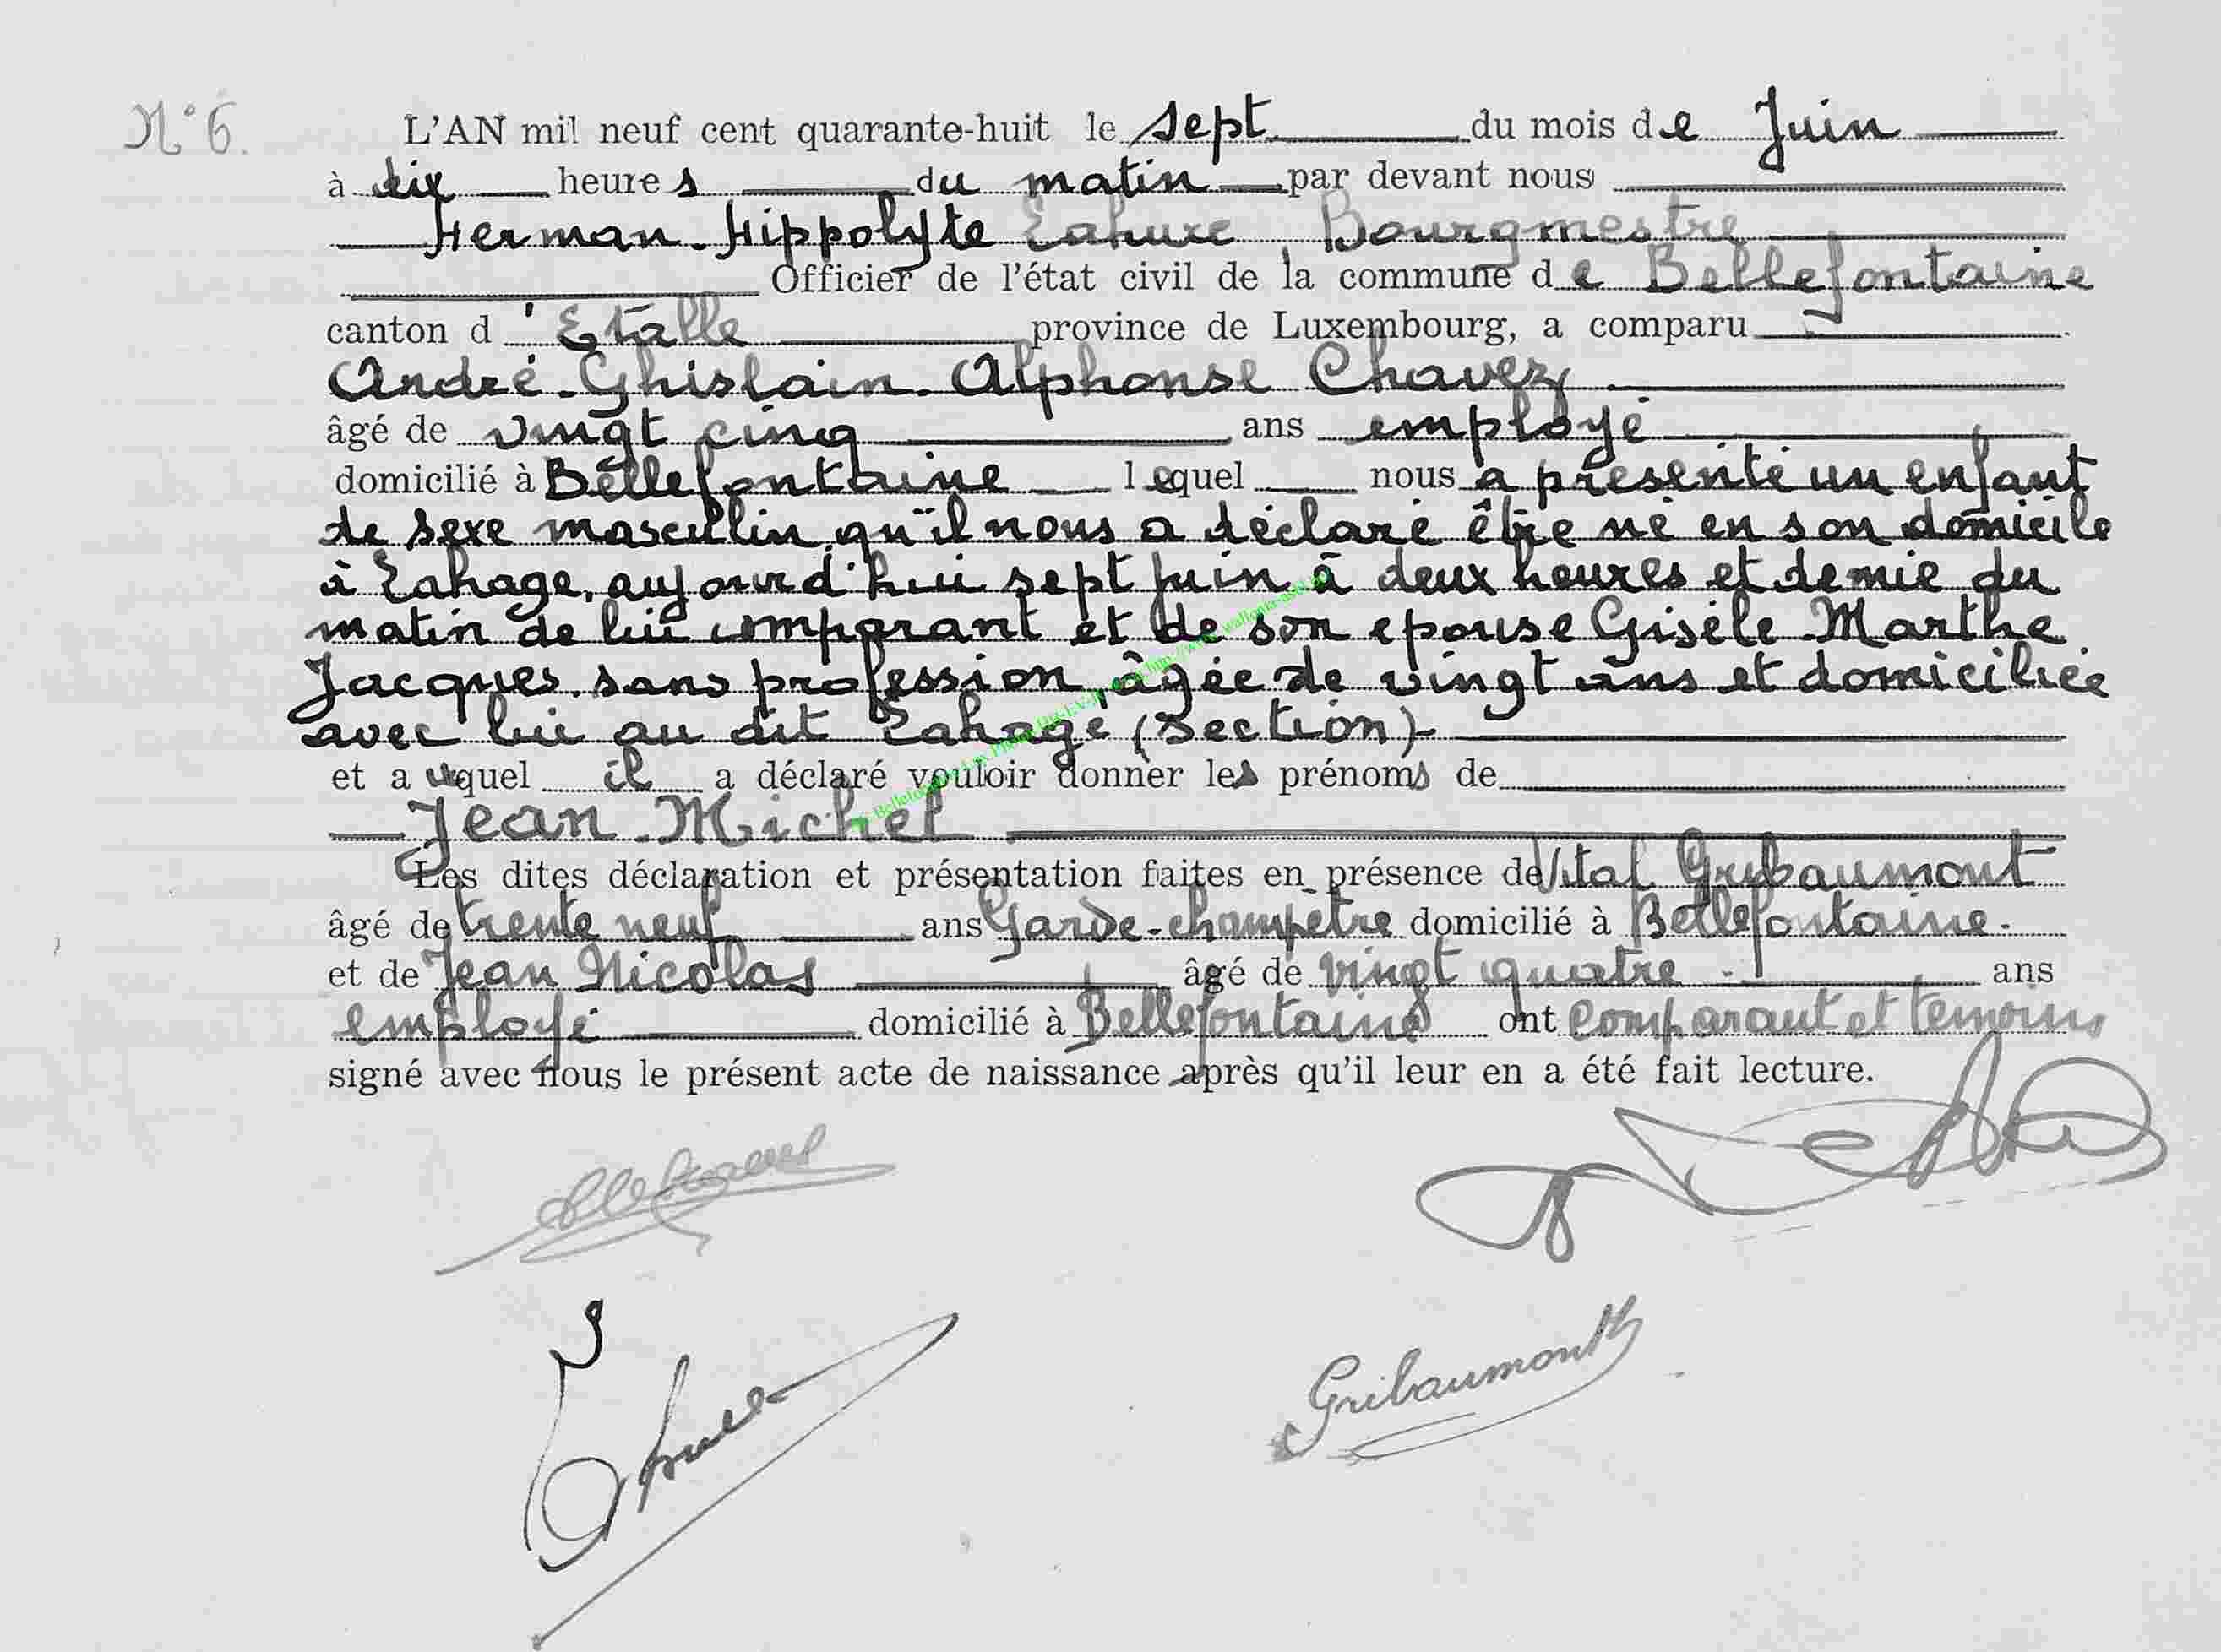 N° 6.
L'AN mil neuf cent quarante-huit le sept du mois de Juin
à dix heures du matin par devant nous
Herman-Hippolyte Lahure, Bourgmestre
Officier de l'état civil de la commune de Bellefontaine
canton d'Etalle province de Luxembourg, a comparu
André-Ghislain-Alphonse Chavez
âgé de vingt cinq ans employé
domicilié à Bellefontaine lequel nous a présenté un enfant
de sexe masculin qu'il nous a déclaré être né en son domicile
à Lahage, aujourd'hui sept juin à deux heures et demie du
matin de lui comparant et de son epouse Gisèle-Marthe
Jacques, sans profession, âgée de vingt ans et domiciliée
avec lui au dit Lahage (section)
et auquel il a déclaré vouloir donner les prénoms de
Jean-Michel
Les dites déclaration et présentation faites en présence de Vital Gribaumont
âgé de trente neuf ans Garde-champêtre domicilié à Bellefontaine.
et de Jean Nicolas âgé de vingt quatre ans
employé domicilié à Bellefontaine ont comparant et temoins
signé avec nous le présent acte de naissance après qu'il leur en a été fait lecture.
Gribaumont